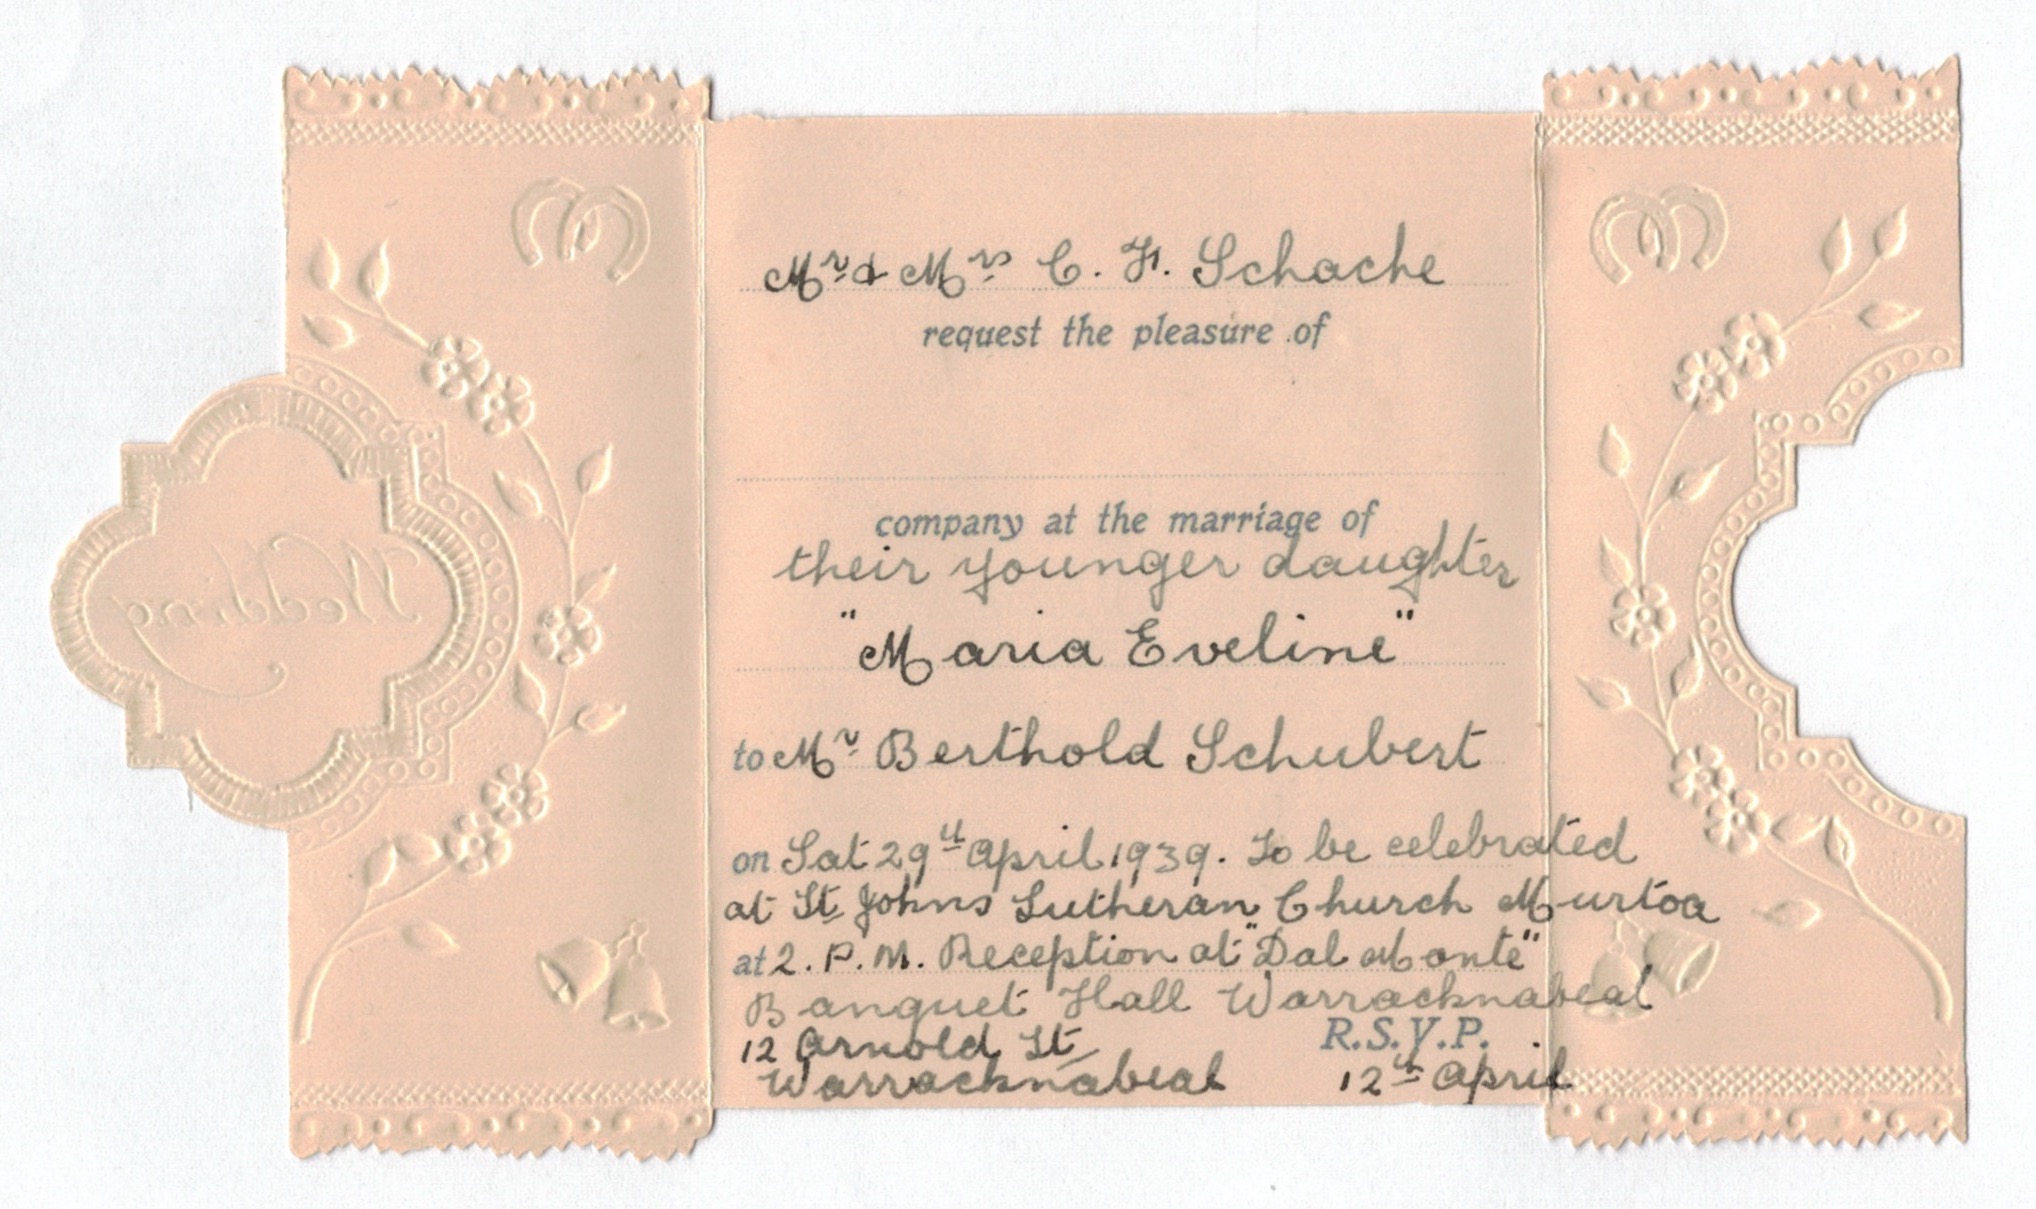 Wedding
Mr & Mrs C. F. Schache
request the pleasure of
company at the marriage of
their younger daughter
"Maria Eveline"
to Mr Berthold Schubert
on Sat 29th April 1939. To be celebrated
at St Johns Lutheran Church Murtoa
at 2. P.M. Reception at "Dal Monte"
Banquet Hall Warracknabeal
12 Arnold St R.S.V.P.
Warracknabeal 12th April